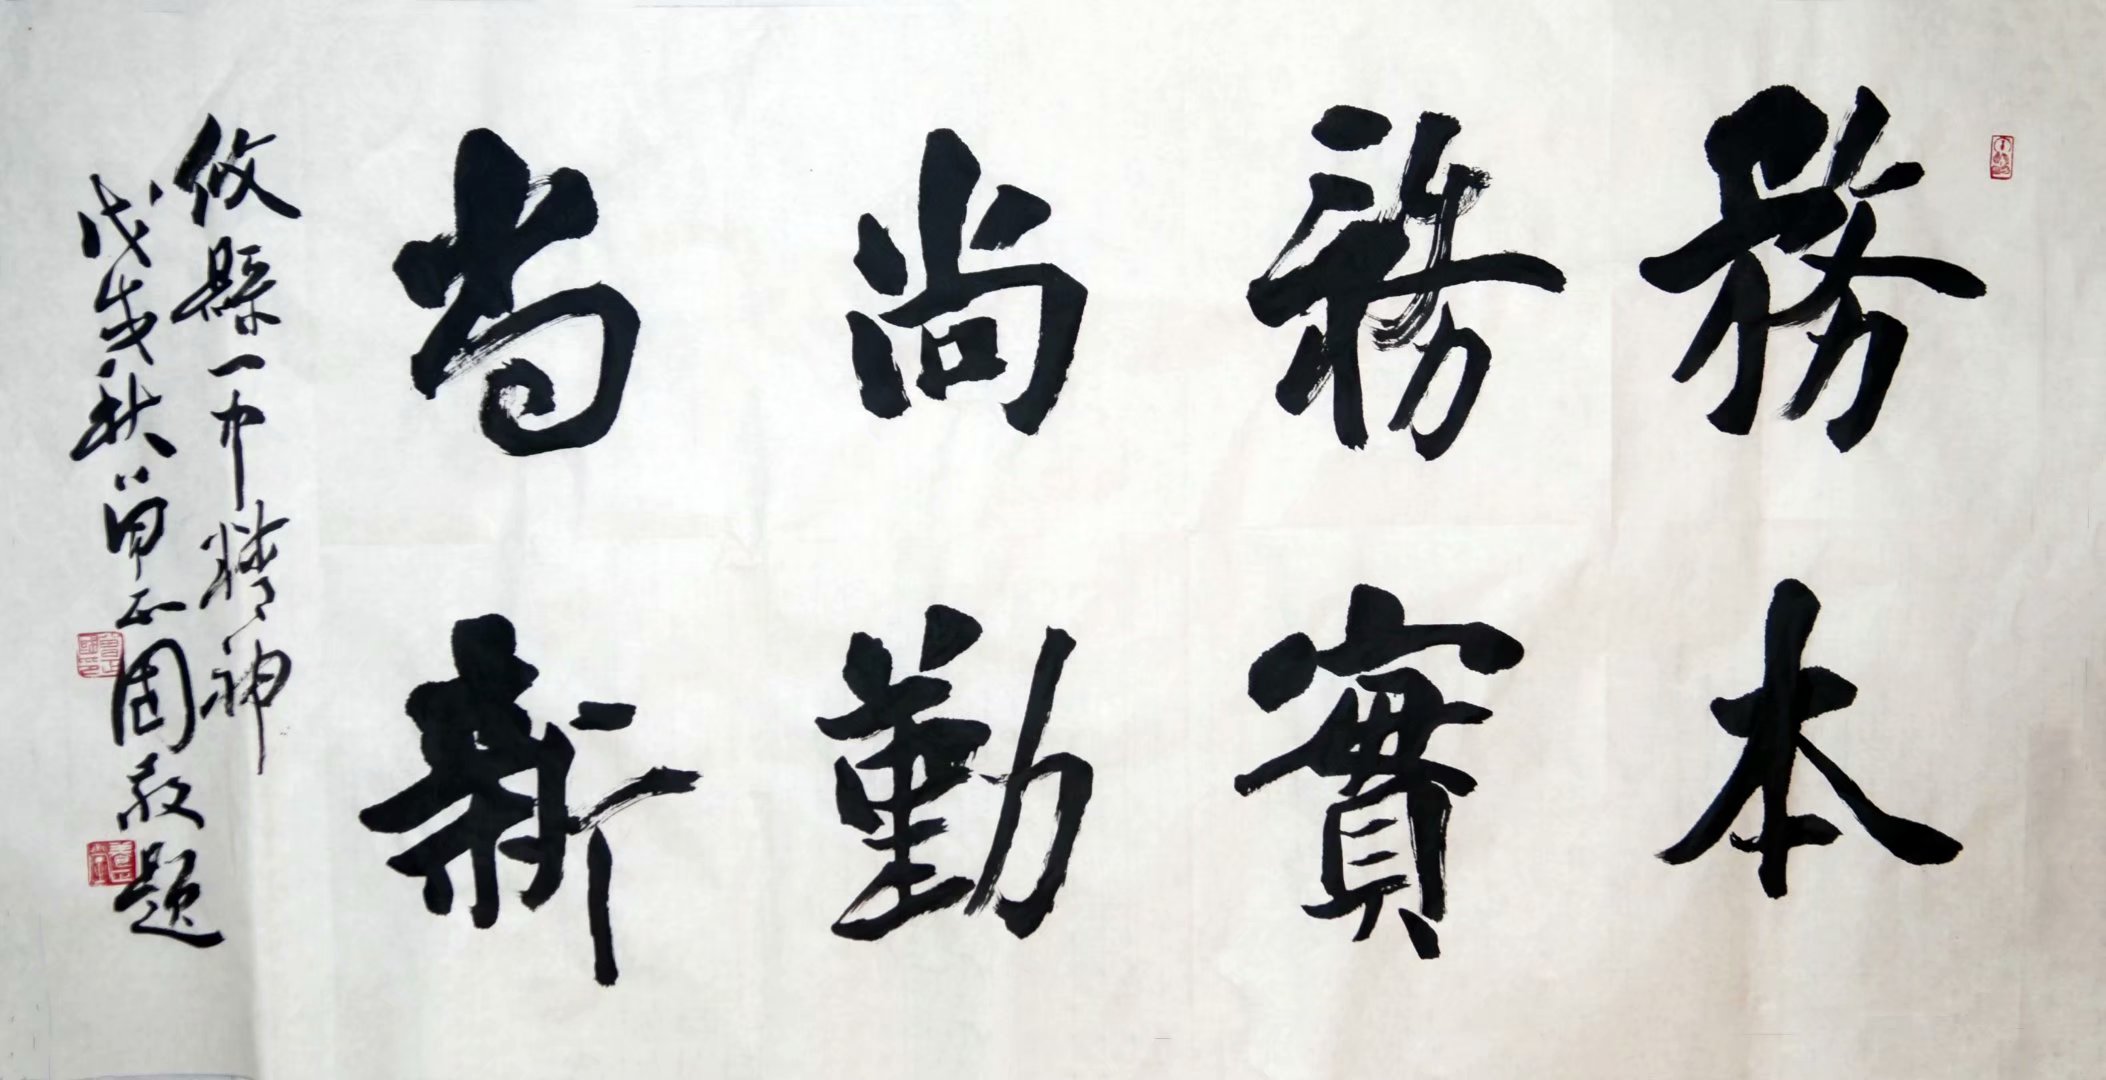 務本
務實
尚勤
尚新
攸縣一中精神
戊戌秋曾正國敬題